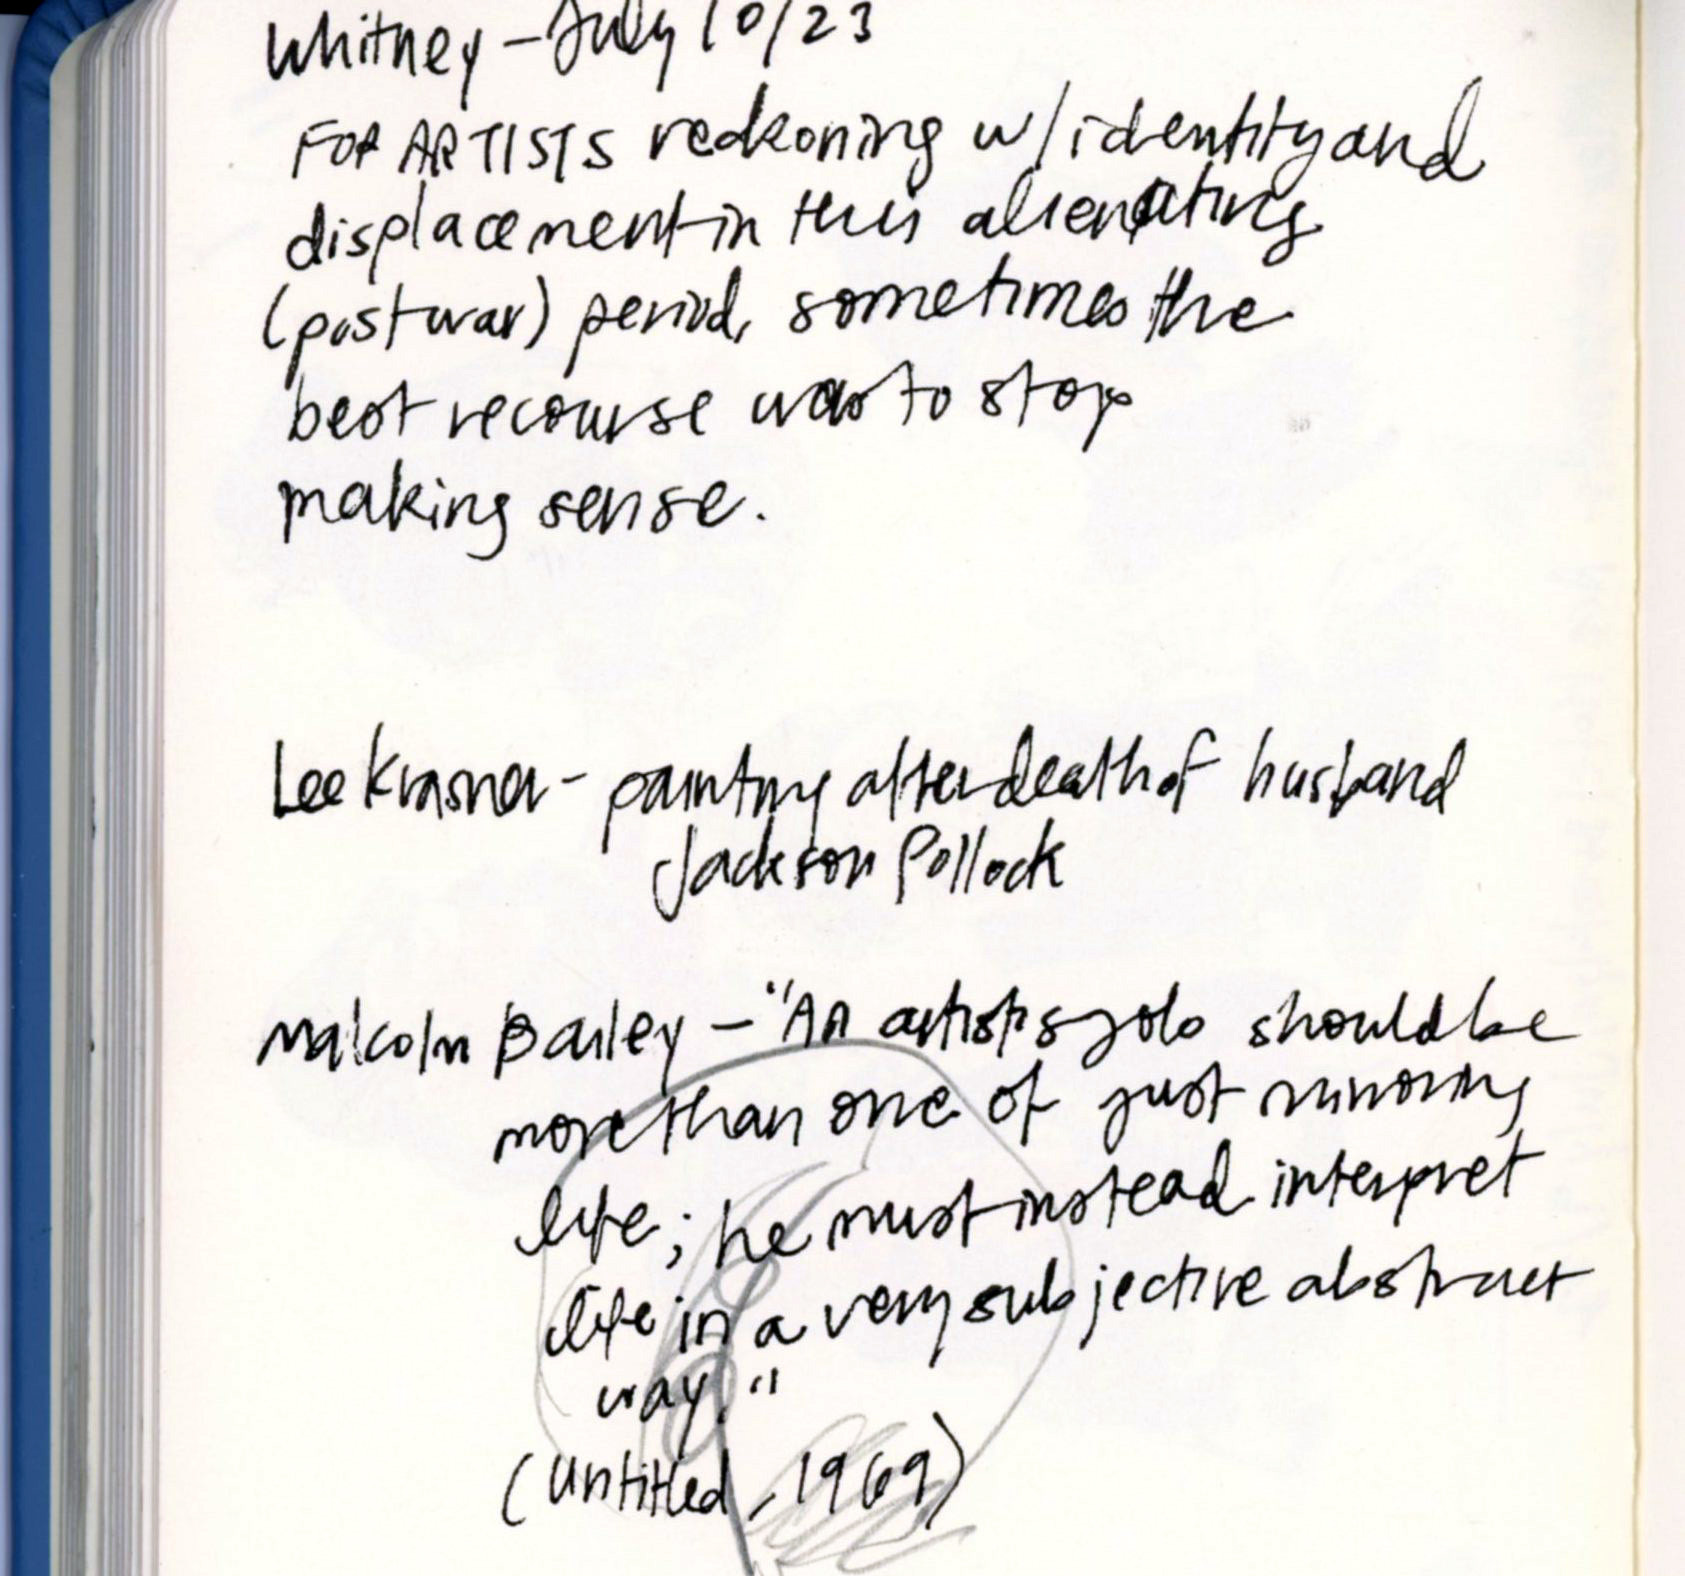 Whitney – July 10/23
FOR ARTISTS reckoning w/ identity and
displacement in this alienating
(postwar) period, sometimes the
best recourse was to stop
making sense.
Lee Krasner - painting after death of husband
Jackson Pollock
Malcolm Bailey – "An artist's job should be
more than one of just mirroring
life; he must instead interpret
life in a very subjective abstract
way."
(Untitled, 1969)